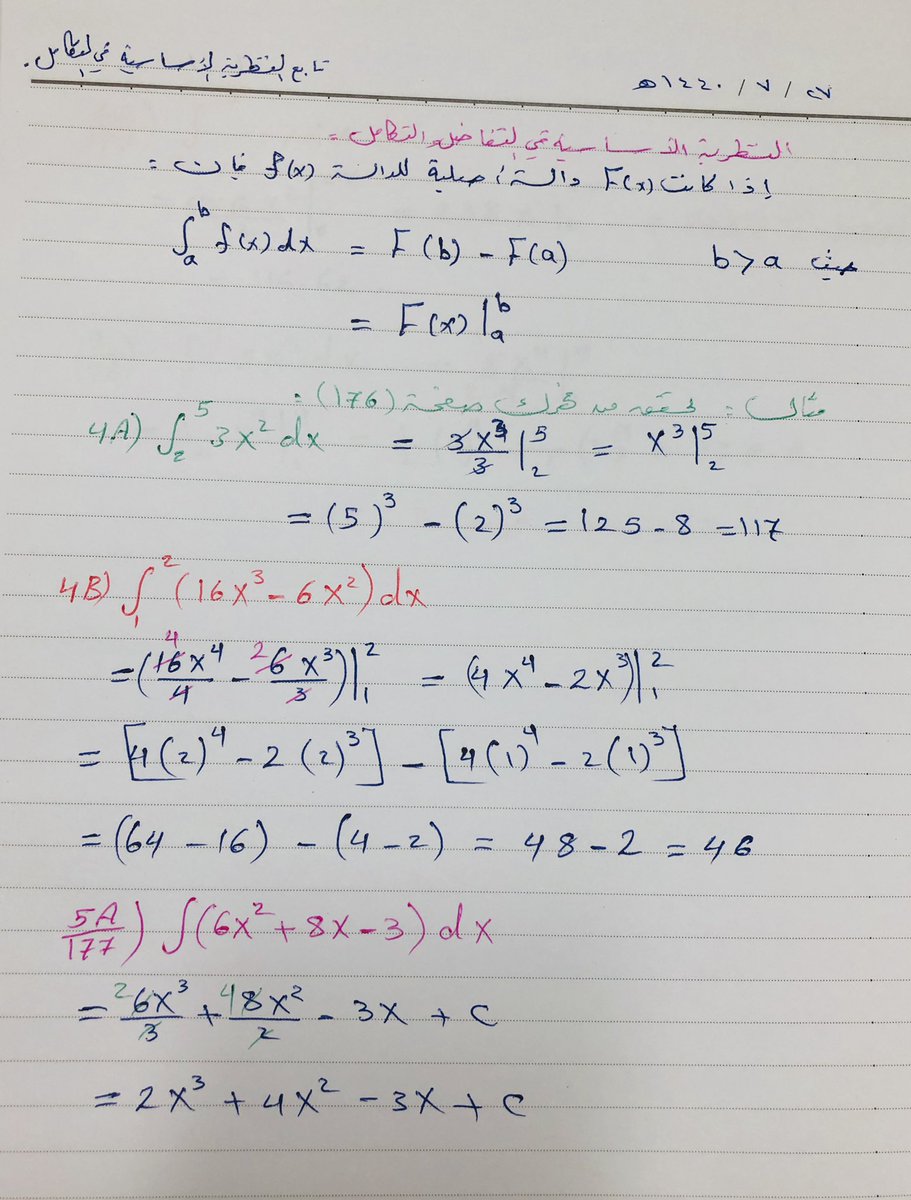 تابع النظرية الأساسية في التكامل. ٢٧ / ٧ / ١٤٤٠هـ
النظرية الأساسية في التفاضل والتكامل :
إذا كانت F(x) دالة أصلية للدالة f(x) فإن :
∫ₐᵇ f(x) dx = F(b) - F(a) حيث b > a
= F(x) |ₐᵇ
مثال : تحقق من فهمك صفحة (176) :
4A) ∫₂⁵ 3x² dx = 3x³/3 |₂⁵ = x³ |₂⁵
= (5)³ - (2)³ = 125 - 8 = 117
4B) ∫₁² (16x³ - 6x²) dx
= (⁴16x⁴/4 - ²6x³/3) |₁² = (4x⁴ - 2x³) |₁²
= [4(2)⁴ - 2(2)³] - [4(1)⁴ - 2(1)³]
= (64 - 16) - (4 - 2) = 48 - 2 = 46
5A/177) ∫(6x² + 8x - 3) dx
= ²6x³/3 + ⁴8x²/2 - 3x + c
= 2x³ + 4x² - 3x + c